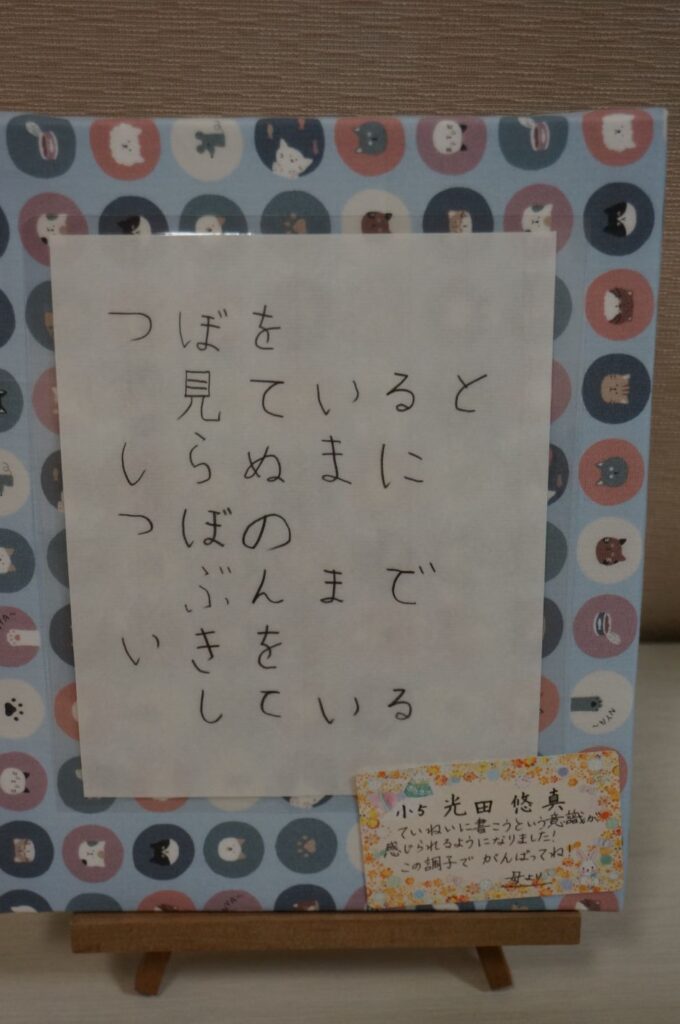 つぼを
見ていると
しらぬまに
つぼの
ぶんまで
いきを
している
小5 光田 悠真
ていねいに書こうという意識が
感じられるようになりました!
この調子で がんばってね!
母より
NYA~
NYA~